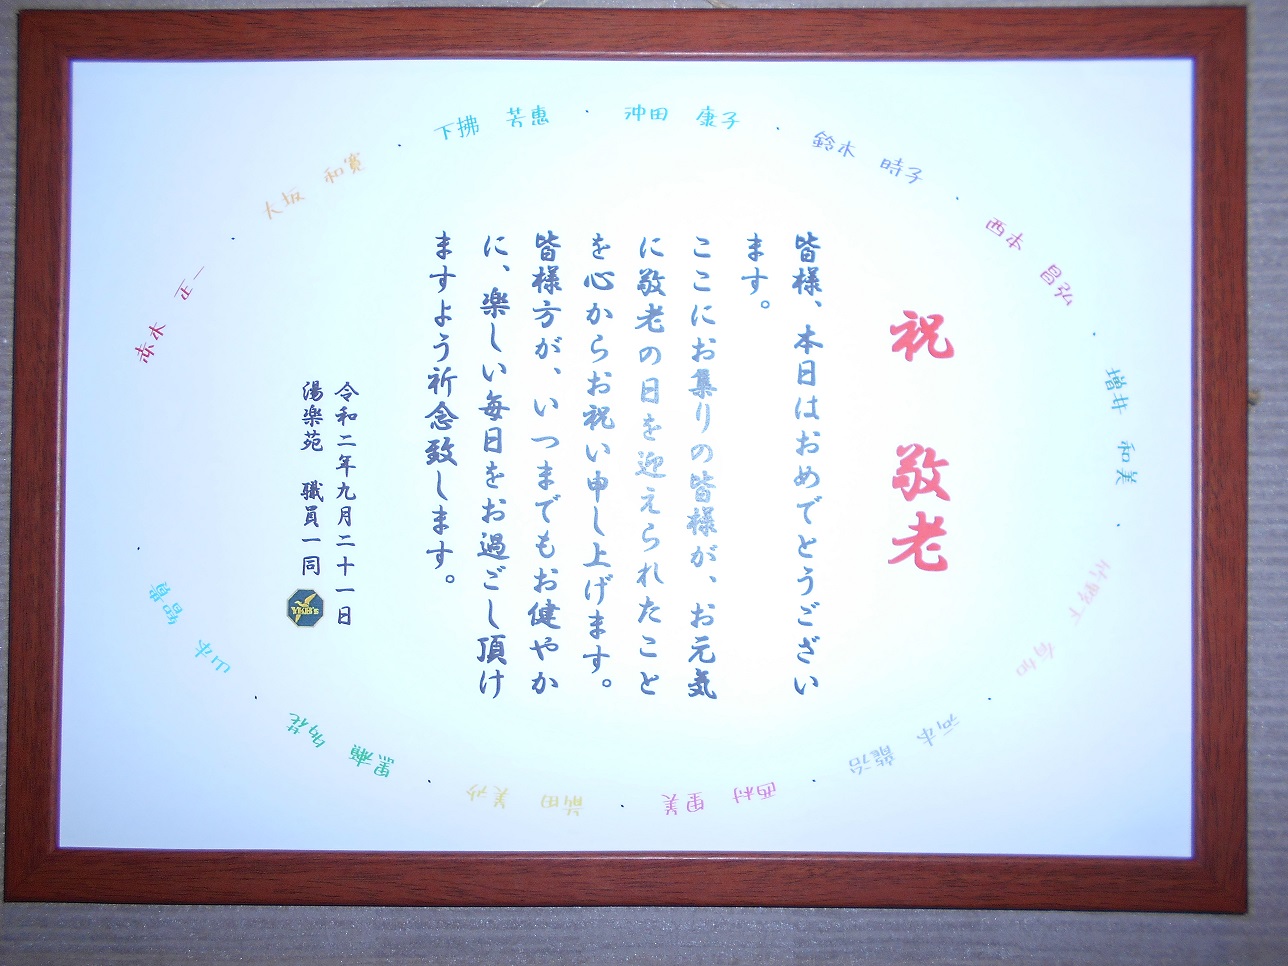 祝 敬老
皆様、本日はおめでとうござい
ます。
ここにお集りの皆様が、お元気
に敬老の日を迎えられたこと
を心からお祝い申し上げます。
皆様方が、いつまでもお健やか
に、楽しい毎日をお過ごし頂け
ますよう祈念致します。
令和二年九月二十一日
湯楽苑 職員一同
YKH's
赤木 正一
大坂 和寛
下拂 芳恵
沖田 康子
鈴木 時子
西本 昌弘
増井 和美
片野下 有加
河本 龍治
西村 里美
前田 美沙
黒瀬 多花
山本